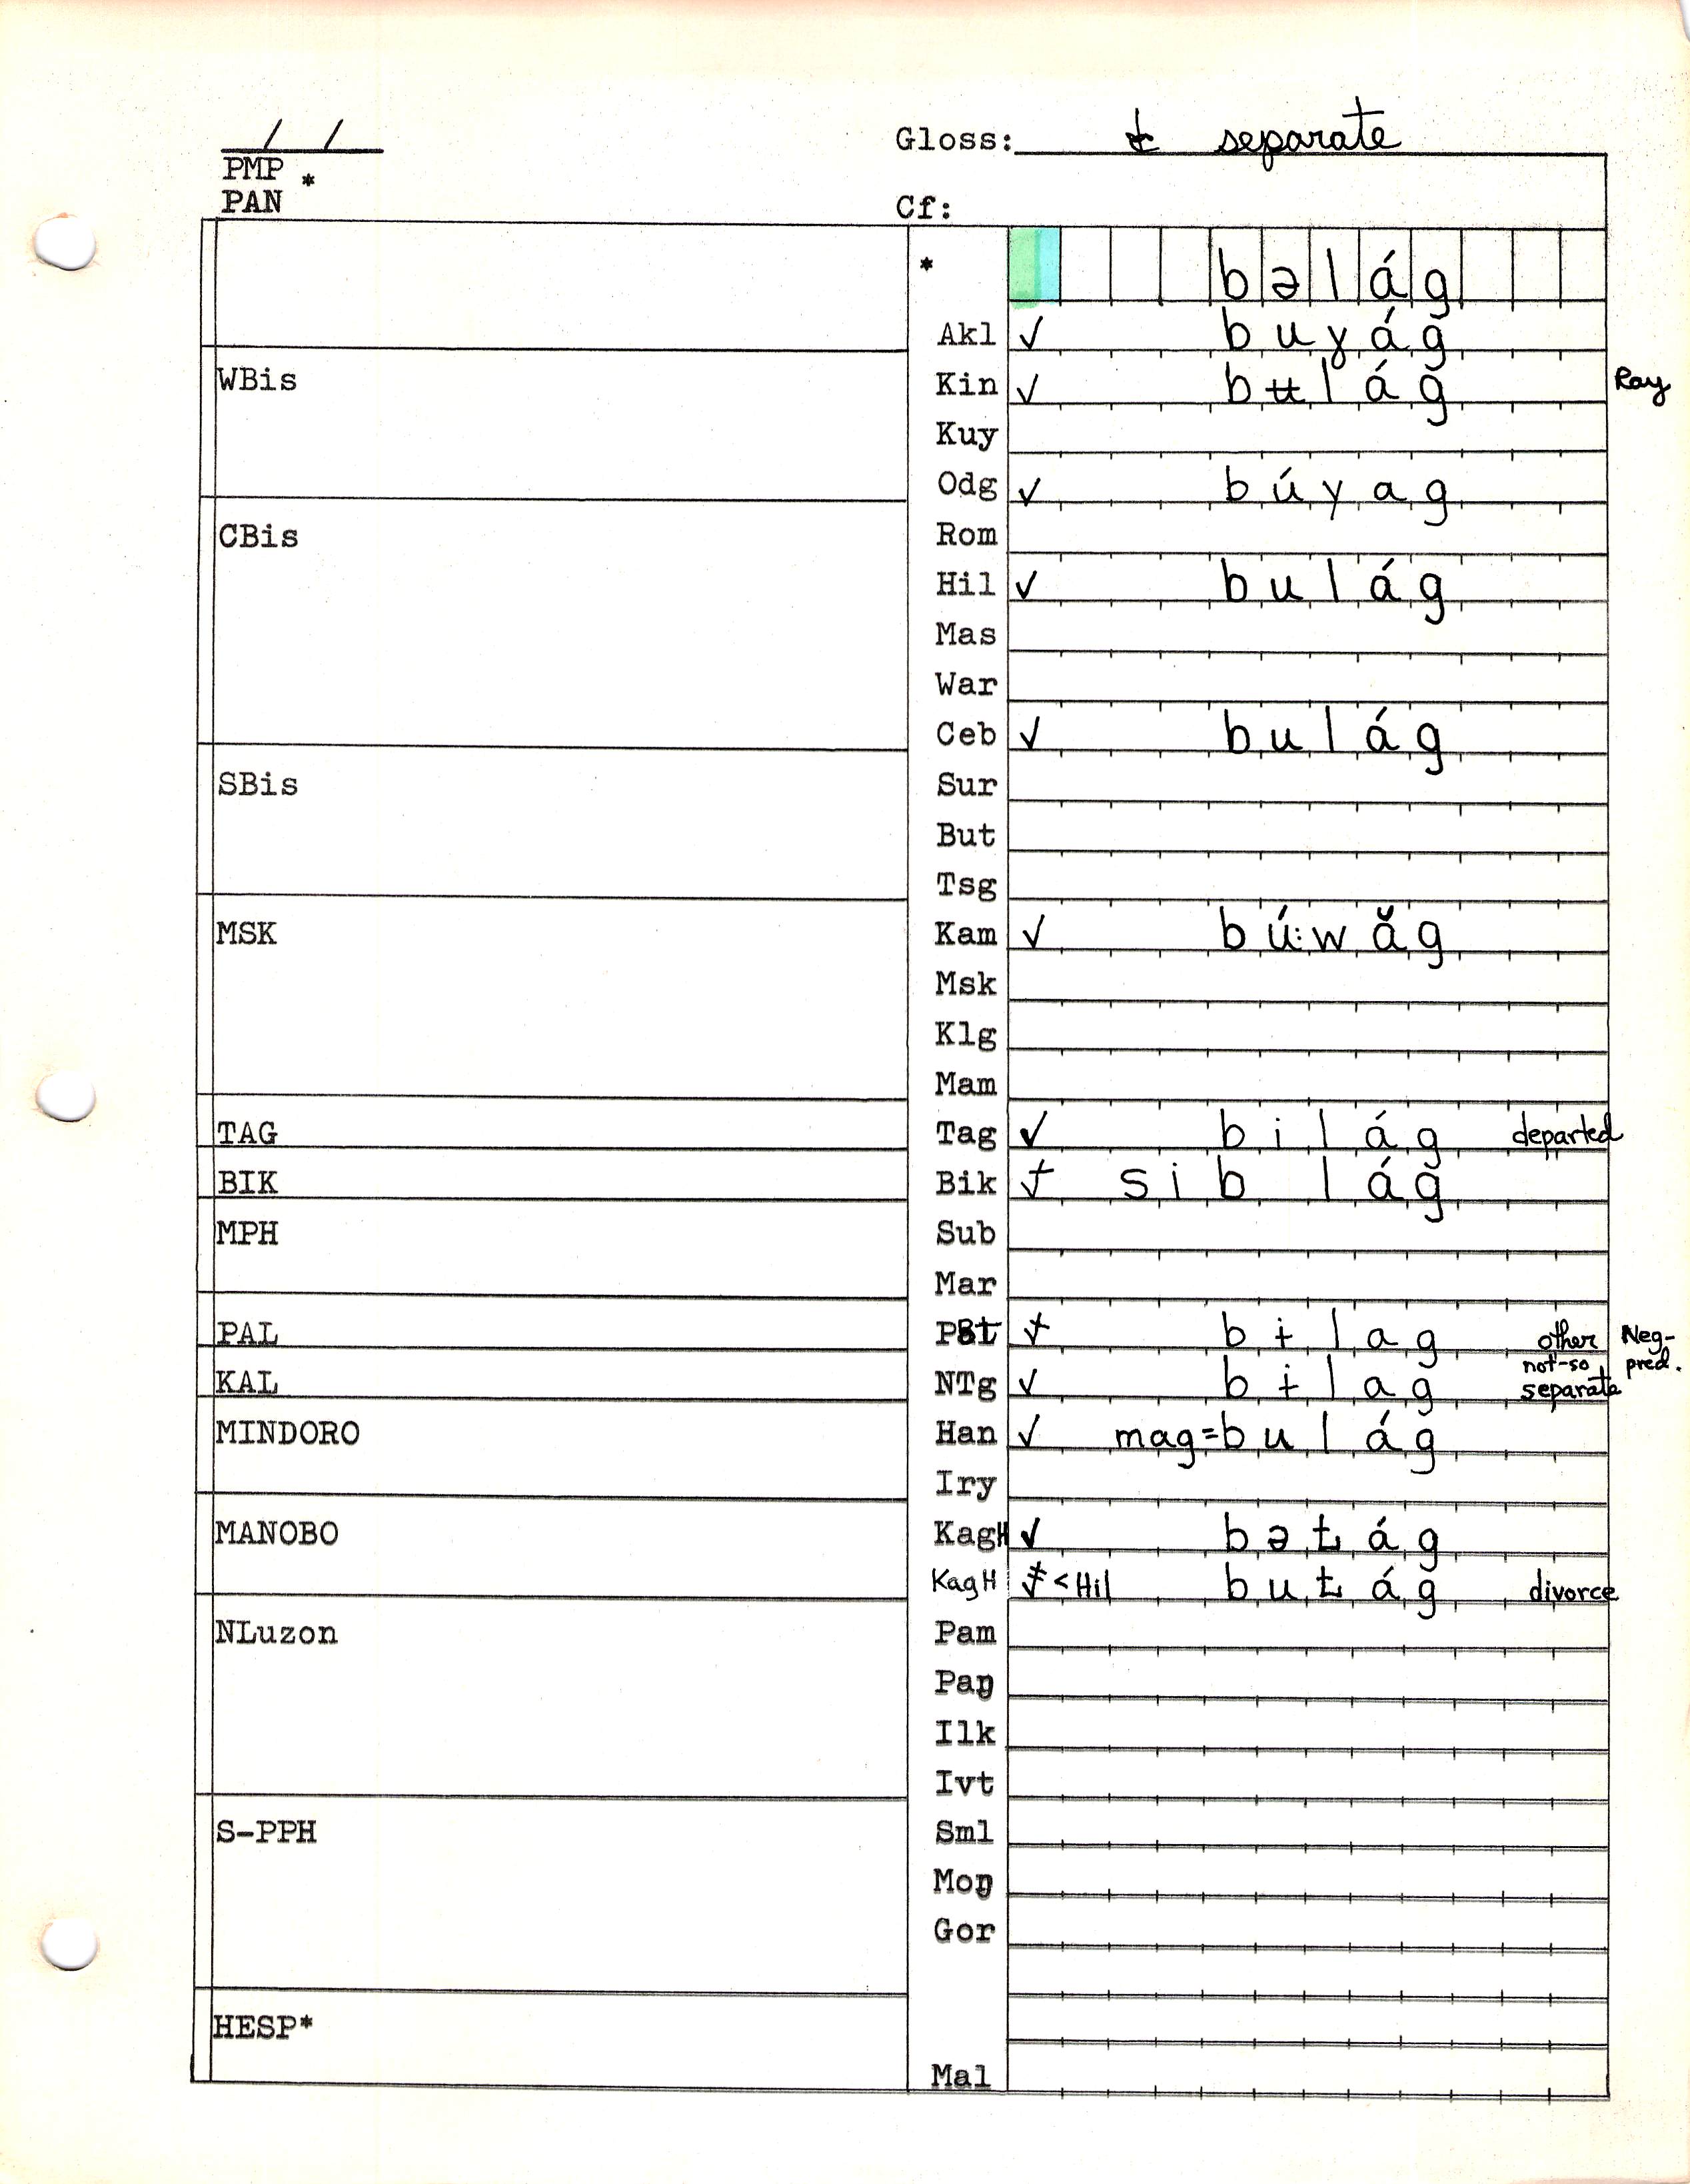 / /
Gloss: ± separate
PMP *
PAN
Cf:
* bəlág
Akl ✓ buɣág
WBis
Kin ✓ bʉlág Ray
Kuy
Odg ✓ búyag
CBis
Rom
Hil ✓ bulág
Mas
War
Ceb ✓ bulág
SBis
Sur
But
Tsg
MSK
Kam ✓ bú:wăg
Msk
Klg
Mam
TAG
Tag ✓ bilág departed
BIK
Bik siblág
MPH
Sub
Mar
PAL
bɨlag other Neg-
not-so pred.
KAL
NTg ✓ bɨlag separate
MINDORO
Han ✓ mag=bulág
Iry
MANOBO
KagH ✓ bəɫág
KagH < Hil buɫág divorce
NLuzon
Pam
Paŋ
Ilk
Ivt
S-PPH
Sml
Moŋ
Gor
HESP*
Mal